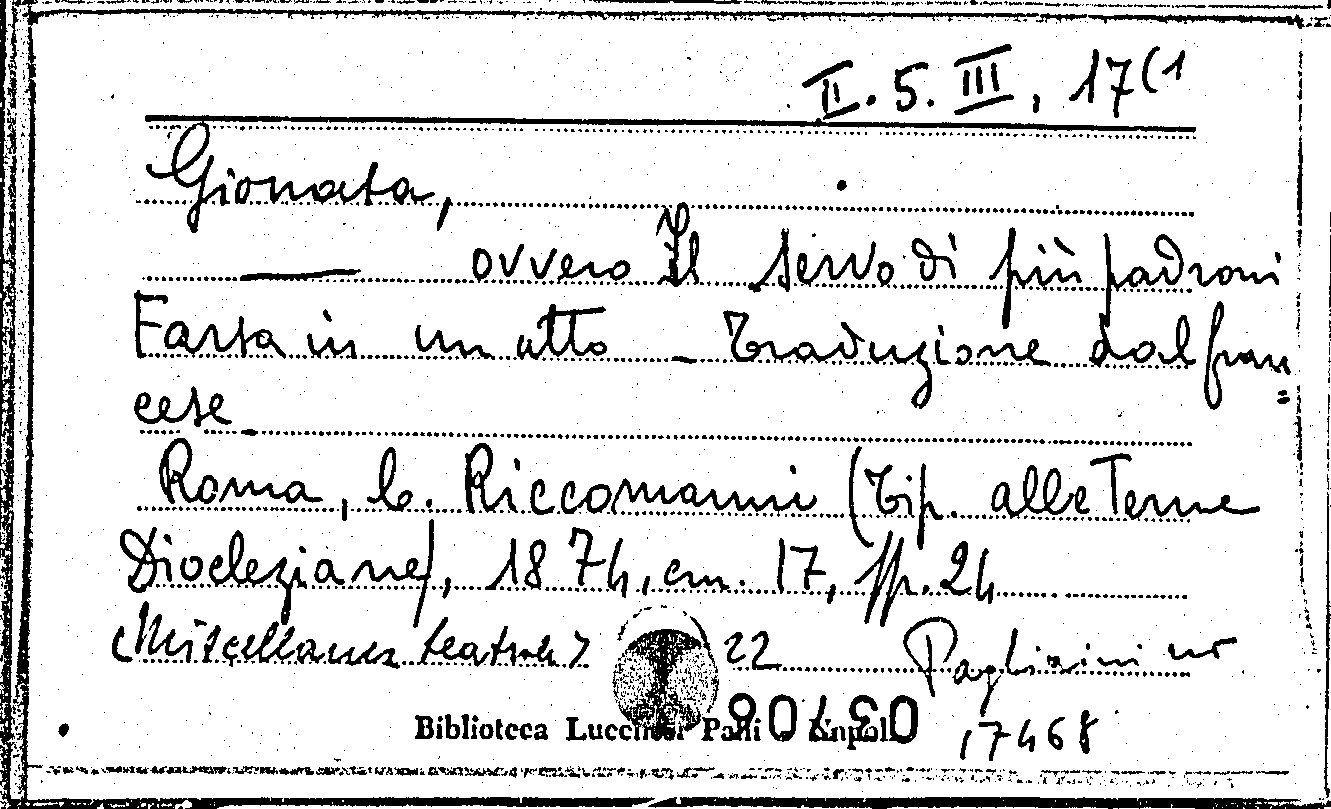 II. 5. III, 17(1
Gionata,
— ovvero Il servo di più padroni
Farsa in un atto - Traduzione dal fran=
cese
Roma, C. Riccomanni (Tip. alle Terme
Diocleziane), 1874, cm. 17, pp. 24
(Miscellanea teatrale) 22 Pagliaini nr
17468
Biblioteca